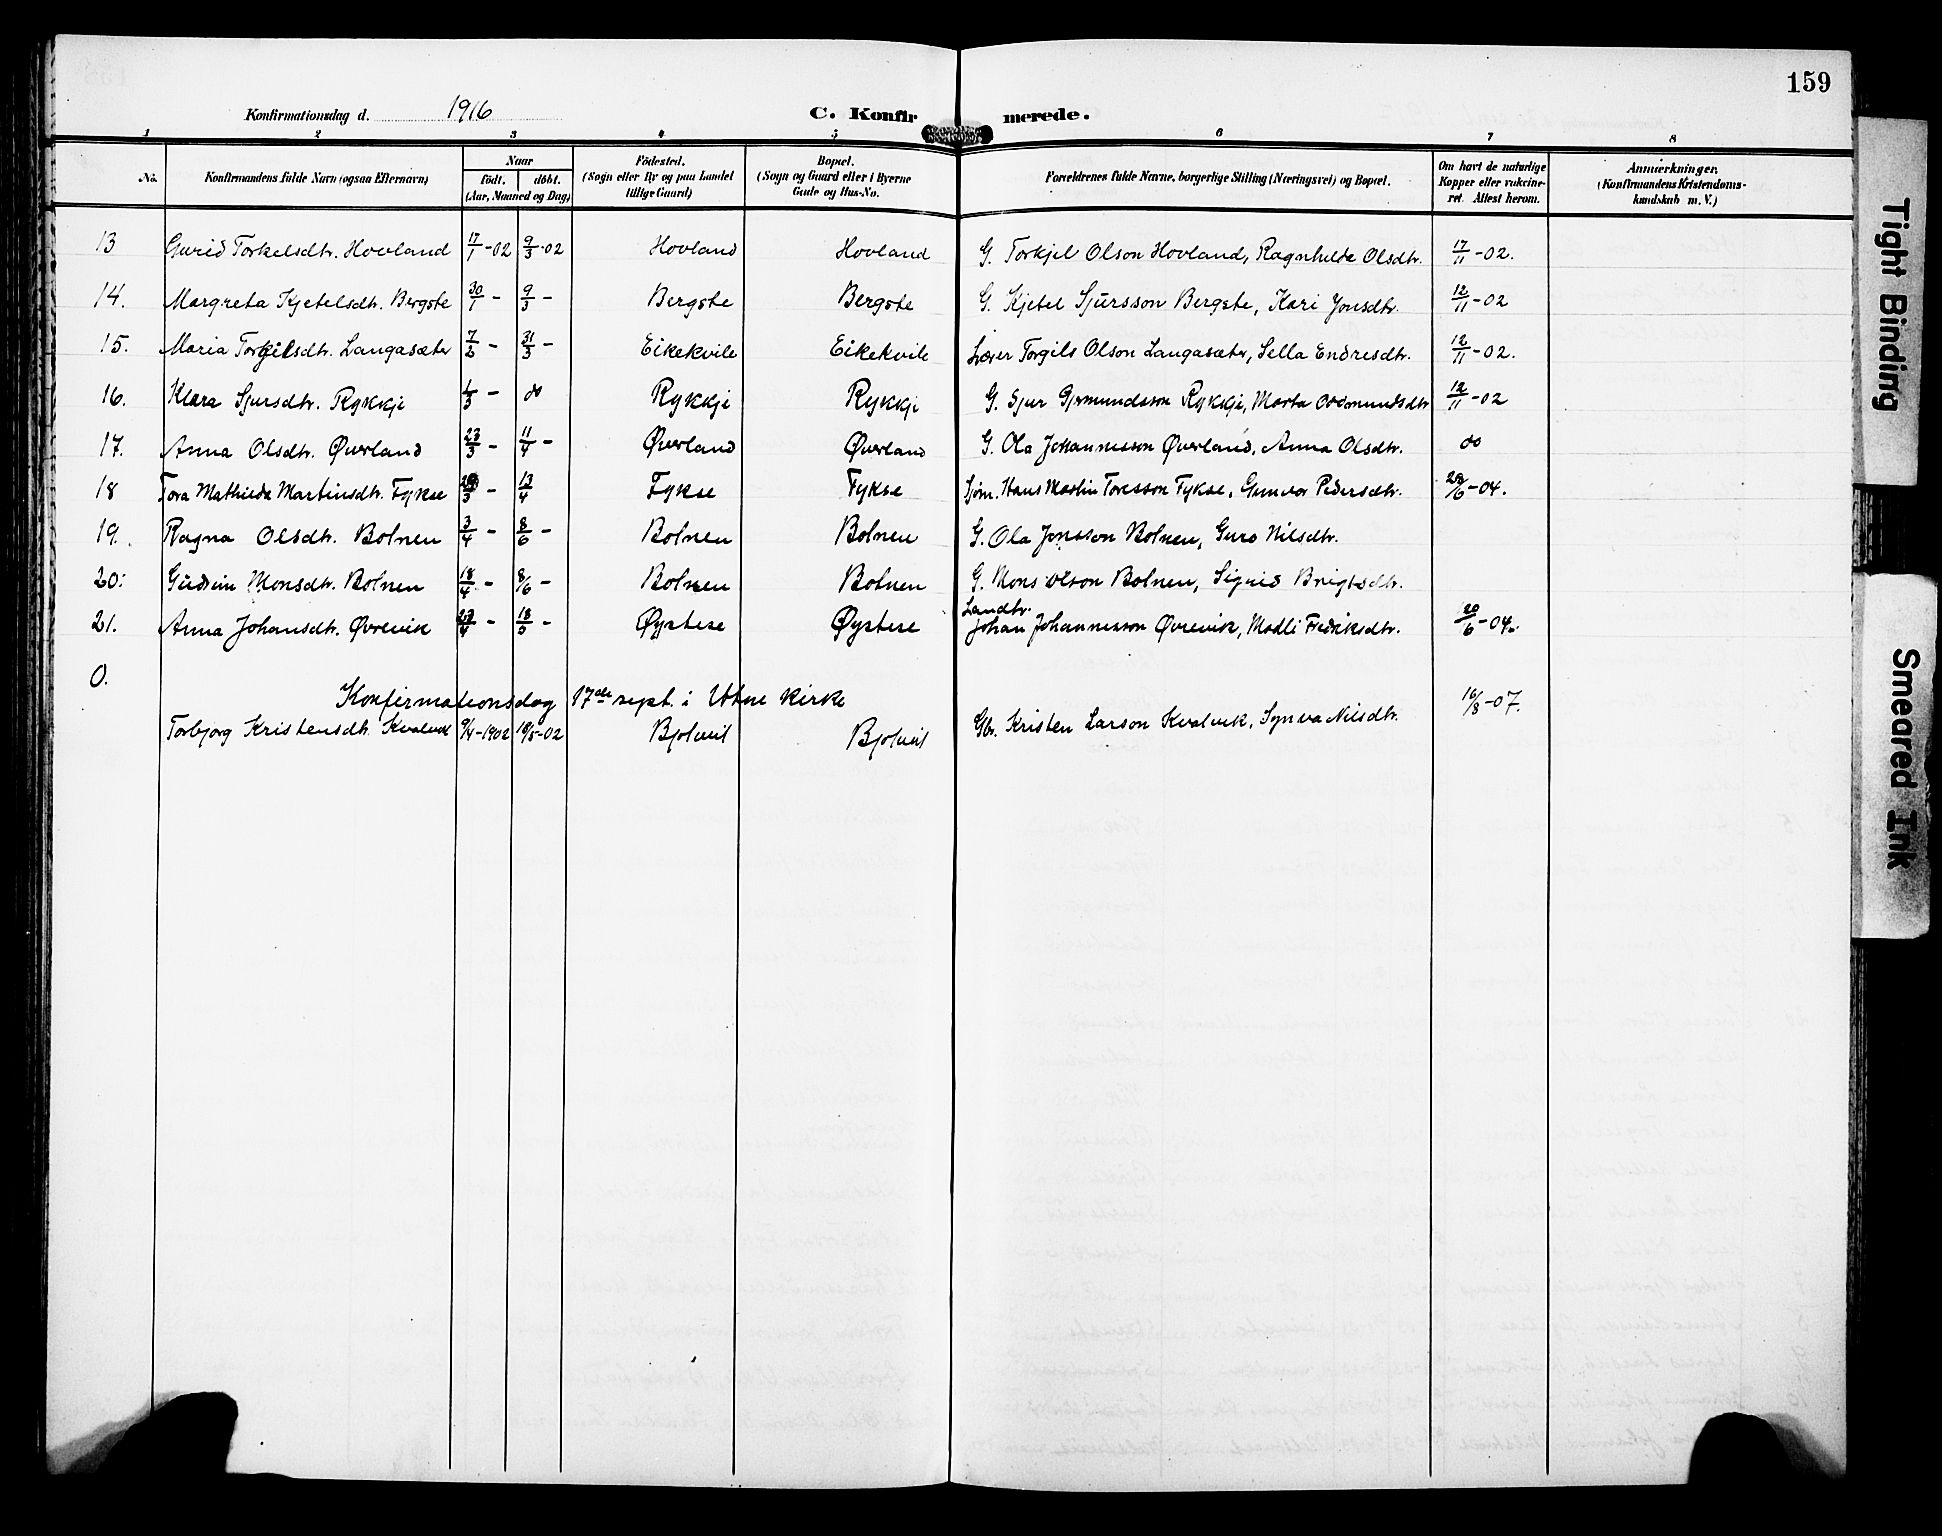 159
Konfirmationsdag d. 1916 C. Konfirmerede.
1 2 3 4 5 6 7 8
No. Konfirmandens fulde Navn (ogsaa Efternavn) Naar födt. döbt. (Aar, Maaned og Dag) Födested. (Sogn eller By og paa Landet tillige Gaard) Bopæl. (Sogn og Gaard eller i Byerne Gade og Hus-No. Forældrenes fulde Navne, borgerlige Stilling (Næringsvei) og Bopæl. Om havt de naturlige Kopper eller vakcineret. Attest herom. Anmærkninger. (Konfirmandens Kristendomskundskab m. V.)
13 Gurid Torkelsdtr. Hovland 17/1 -02 9/3 -02 Hovland Hovland G. Torkjel Olson Hovland, Ragnhilda Olsdtr. 17/11 -02.
14. Margreta Kjetelsdtr. Bergste 30/1 - 9/3 - Bergste Bergste G. Kjetel Sjursson Bergste, Kari Jonsdtr. 12/11 -02
15. Maria Torgilsdtr. Langasæter 7/2 - 31/3 - Eikekvile Eikekvile Torgils Olson Langasæter, Sella Endresdtr. 12/11 -02.
16. Klara Sjursdtr. Rykkje 1/3 - do Rykkje Rykkje G. Sjur Rykkje, Marta 12/11 -02
17. Anna Olsdtr. Øverland 23/3 - 11/4 - Øverland Øverland G. Ola Johannesson Øverland, Anna Olsdtr. do
18 Tora Mathilda Martinsdtr. Fykse /3 - 13/4 Fykse Fykse Sjøm. Hans Martin Toresson Fykse, Gunvor Pedersdtr. /6 -04.
19. Ragna Olsdtr. Botnen 3/4 - 8/6 - Botnen Botnen G. Ola Jonsson Botnen, Guro Nilsdtr.
20. Gudrun Monsdtr. Botnen 18/4 - 8/6 - Botnen Botnen G. Mons Olson Botnen, Sigrid Brigtsdtr.
21. Anna Johansdtr. Øvrevik /4 - 18/5 - Øystese Øystese Landhr. Johan Johannesson Øvrevik, Madli Fredriksdtr. 20/6 -04.
0.
Konfirmationsdag 17de sept. i Utne kirke
Torbjorg Kristensdtr. Kvalvik 9/4-1902 19/5-02 Bjolveit Bjolveit Gbr. Kristen Larson Kvalvik, Synva Nilsdtr. 16/8-07.
Tight Binding
Smeared Ink